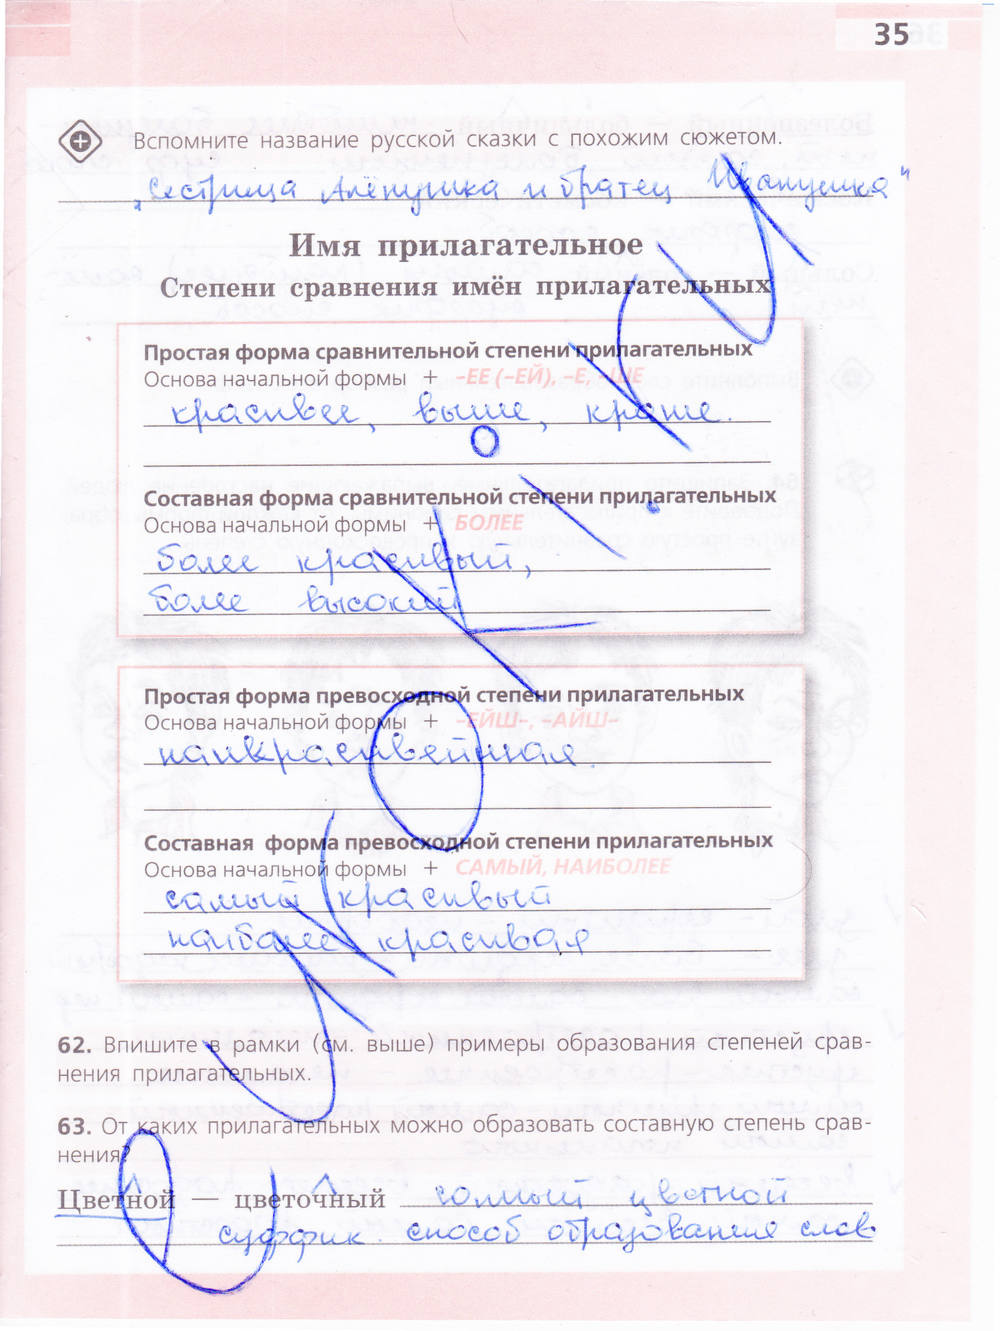 35
Вспомните название русской сказки с похожим сюжетом.
„Сестрица Алёнушка и братец Иванушка"
Имя прилагательное
Степени сравнения имён прилагательных
Простая форма сравнительной степени прилагательных
Основа начальной формы + –ЕЕ (–ЕЙ), –Е, –ШЕ
красивее, выше, краше.
Составная форма сравнительной степени прилагательных
Основа начальной формы + БОЛЕЕ
более красивый,
более высокий
Простая форма превосходной степени прилагательных
Основа начальной формы + –ЕЙШ–, –АЙШ–
наикрасивейшая.
Составная форма превосходной степени прилагательных
Основа начальной формы + САМЫЙ, НАИБОЛЕЕ
самый красивый
наиболее красивая
62. Впишите в рамки (см. выше) примеры образования степеней срав-
нения прилагательных.
63. От каких прилагательных можно образовать составную степень срав-
нения?
Цветной — цветочный самый цветной
суффик. способ образования слов